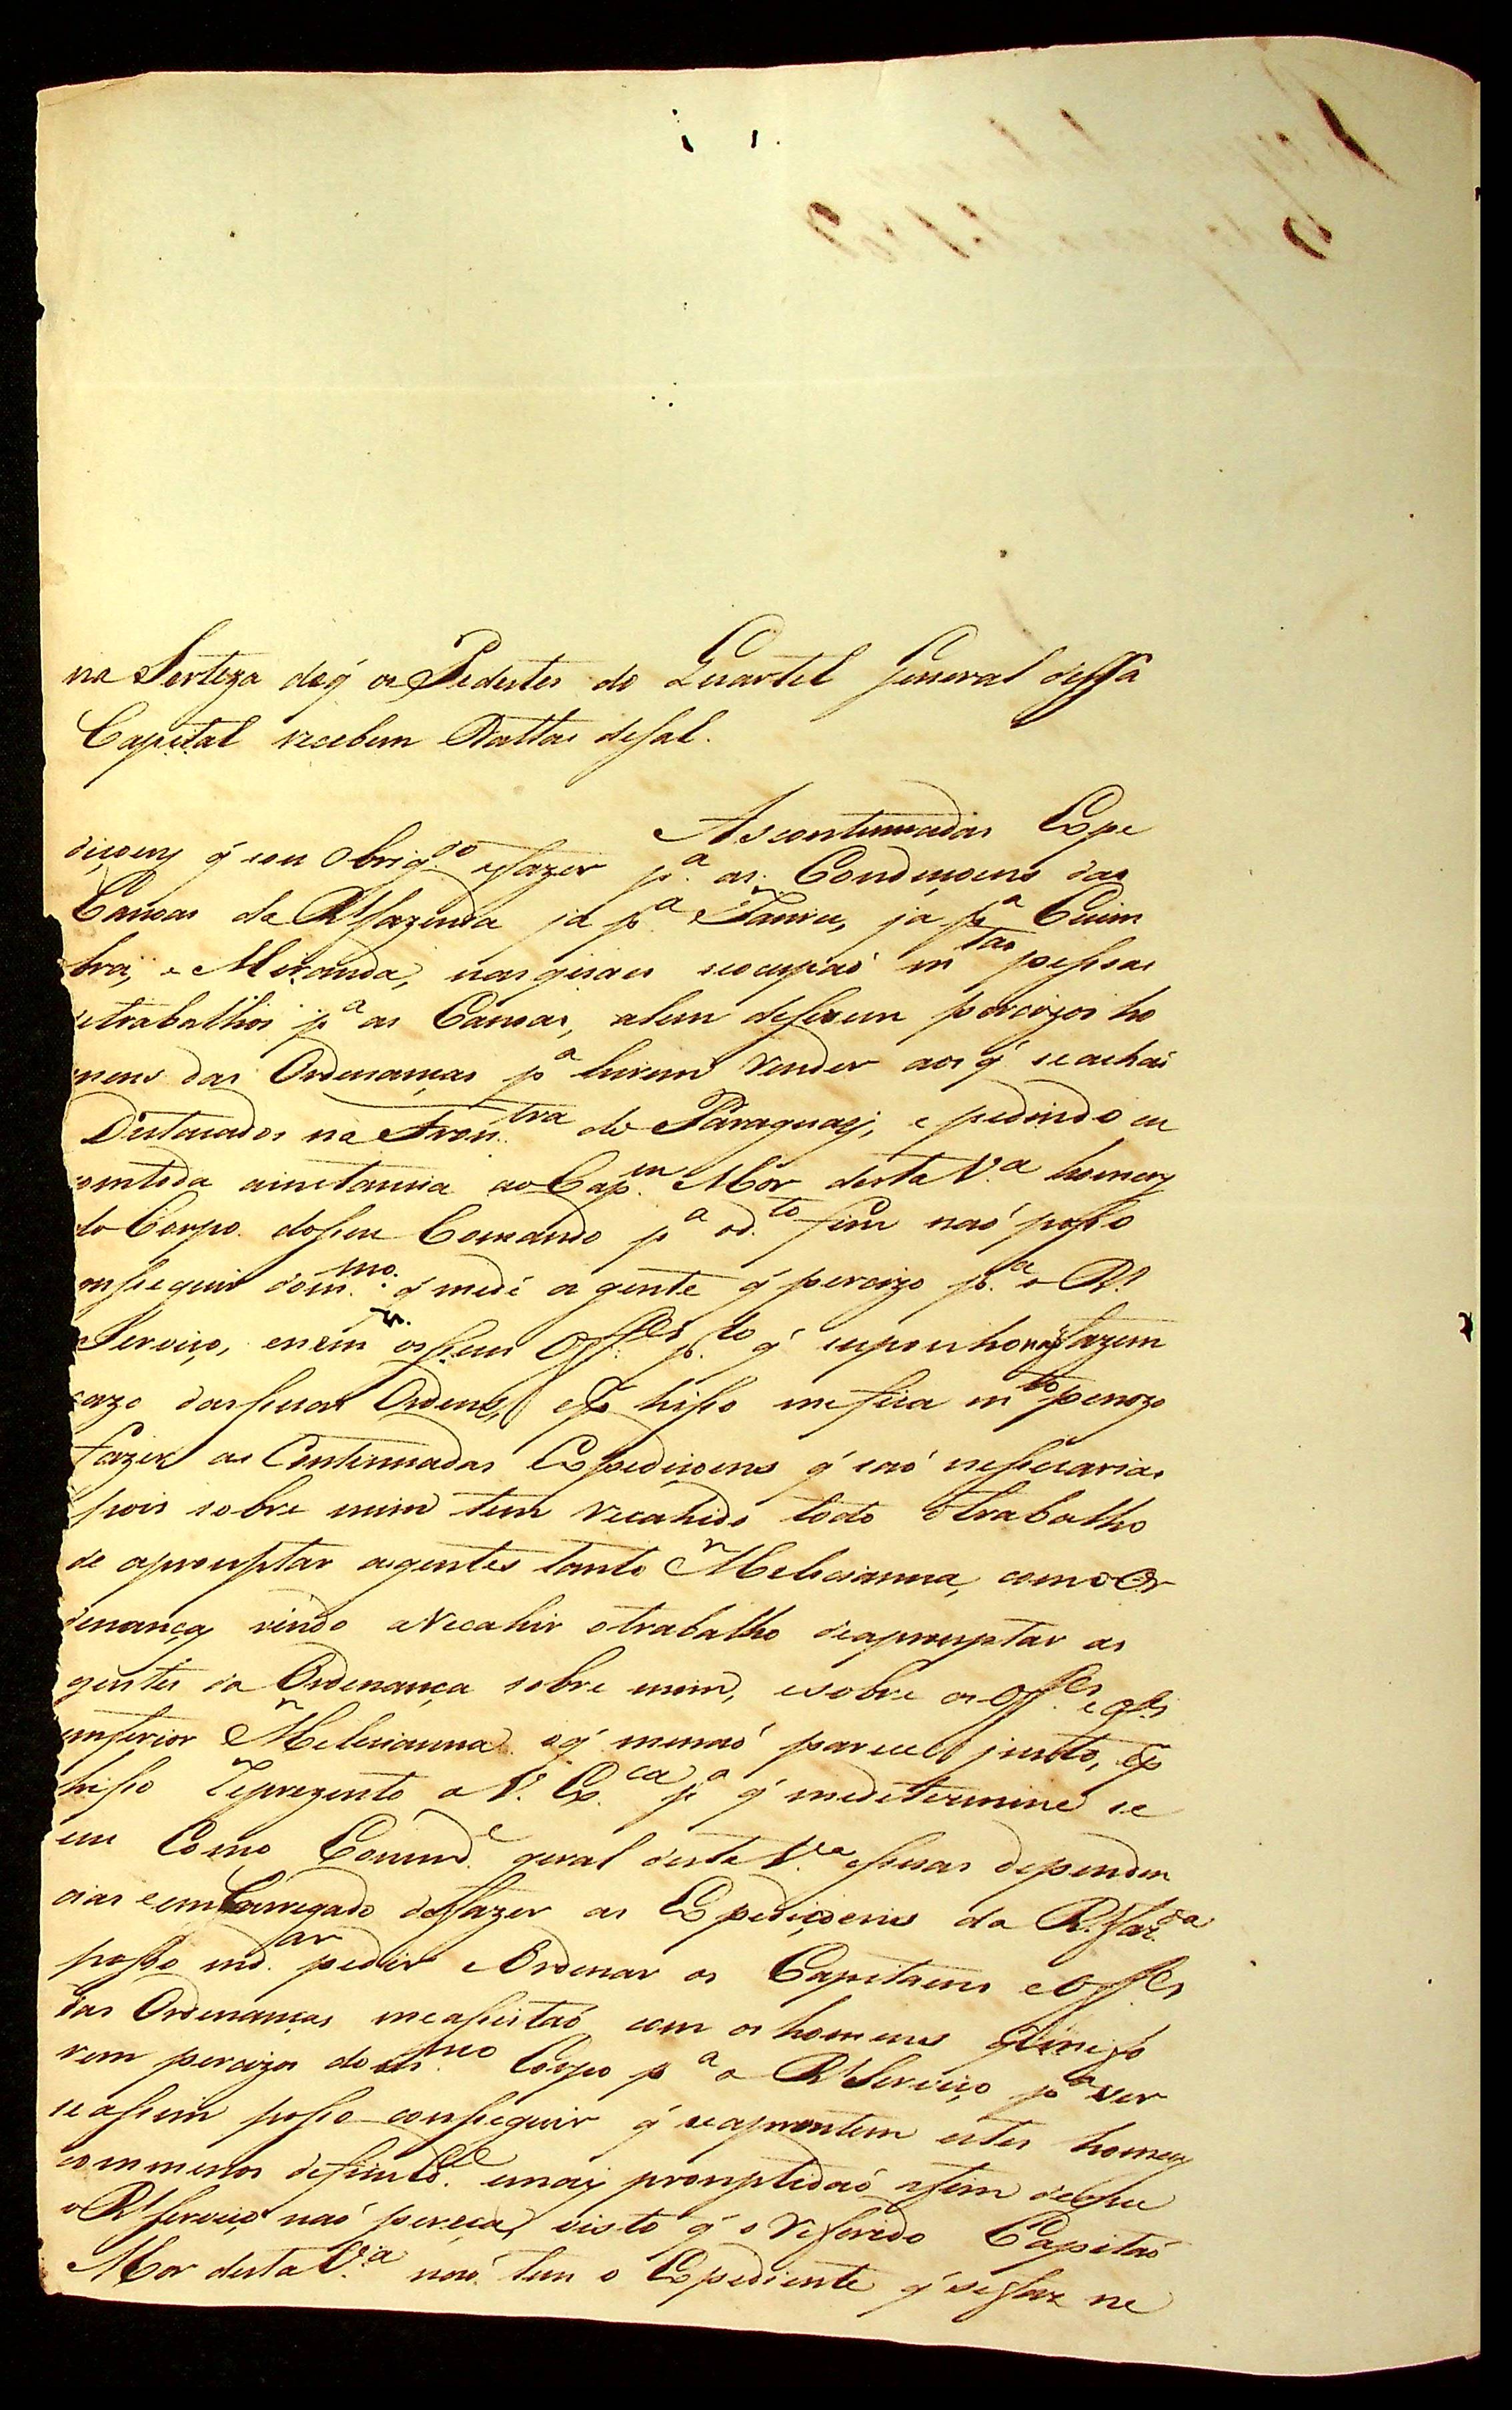 na Serteza deq̃ os Pedestes do Quartel General dessa
Capital recebem Dattas desal.
As continuadas Expe
diçoens q̃ sou obrig.do afazer p.a as Conduçoens das
Canoas da Rl fazenda já p.a Camica, já p.a Cuim
bra, e Miranda, nas quaes seocupaõ m.tas pessoas
etrabalhos p.a as Canoas, alem deserem percizos ho
mens das Ordenanças p.a hirem render aos q̃ seachaõ
Destacados na Fron.tra do Paraguay, e pedindo eu
comtoda ainstancia ao Cap.m Mór desta V.a homens
do Corpo doseu Comando p.a od.to fim naõ posso
conseguir dom.mo q̃ mede a gente q̃ percizo p.a o Rl.
Serviço, enem osseus Off.es p.to q̃ suponho naõ fazem
cazo dassuas Ordens, e p hisso mefica m.to penozo
fazer as Continuadas Expediçoens q̃ saõ nessesarias
pois sobre mim tem recahido todo otrabalho
de apromptar asgentes tanto Meliciannna, como Or
denança, vindo arecahir otrabalho deapromptar as
gentes da Ordenança sobre mim, esobre os Off.es e Off.es
inferior Melicianna oq̃ menaõ parece justo, e p
hisso Reprezento a V. Ex.ca p.a q̃ medetermine se
eu Como Comand.e geral desta V.a esuas dependen
cias eemCarregado defazer as Expediçoens da Rl. Faz.da
posso md.ar pedir eOrdenar os Capitaens eOff.es
das Ordenanças meassistaõ com os homens q̃
rem percizos dom.mo Corpo p.a o Rl Serviço p.a ver
seassim posso conseguir q̃ seaprontem estes homens
commenos defficuld.e emais promptidaõ afim deque
oRl serviço naõ pereça, visto q̃ o referido Capitaõ
Mor desta V.a naõ tem o Expediente q̃ sefaz ne